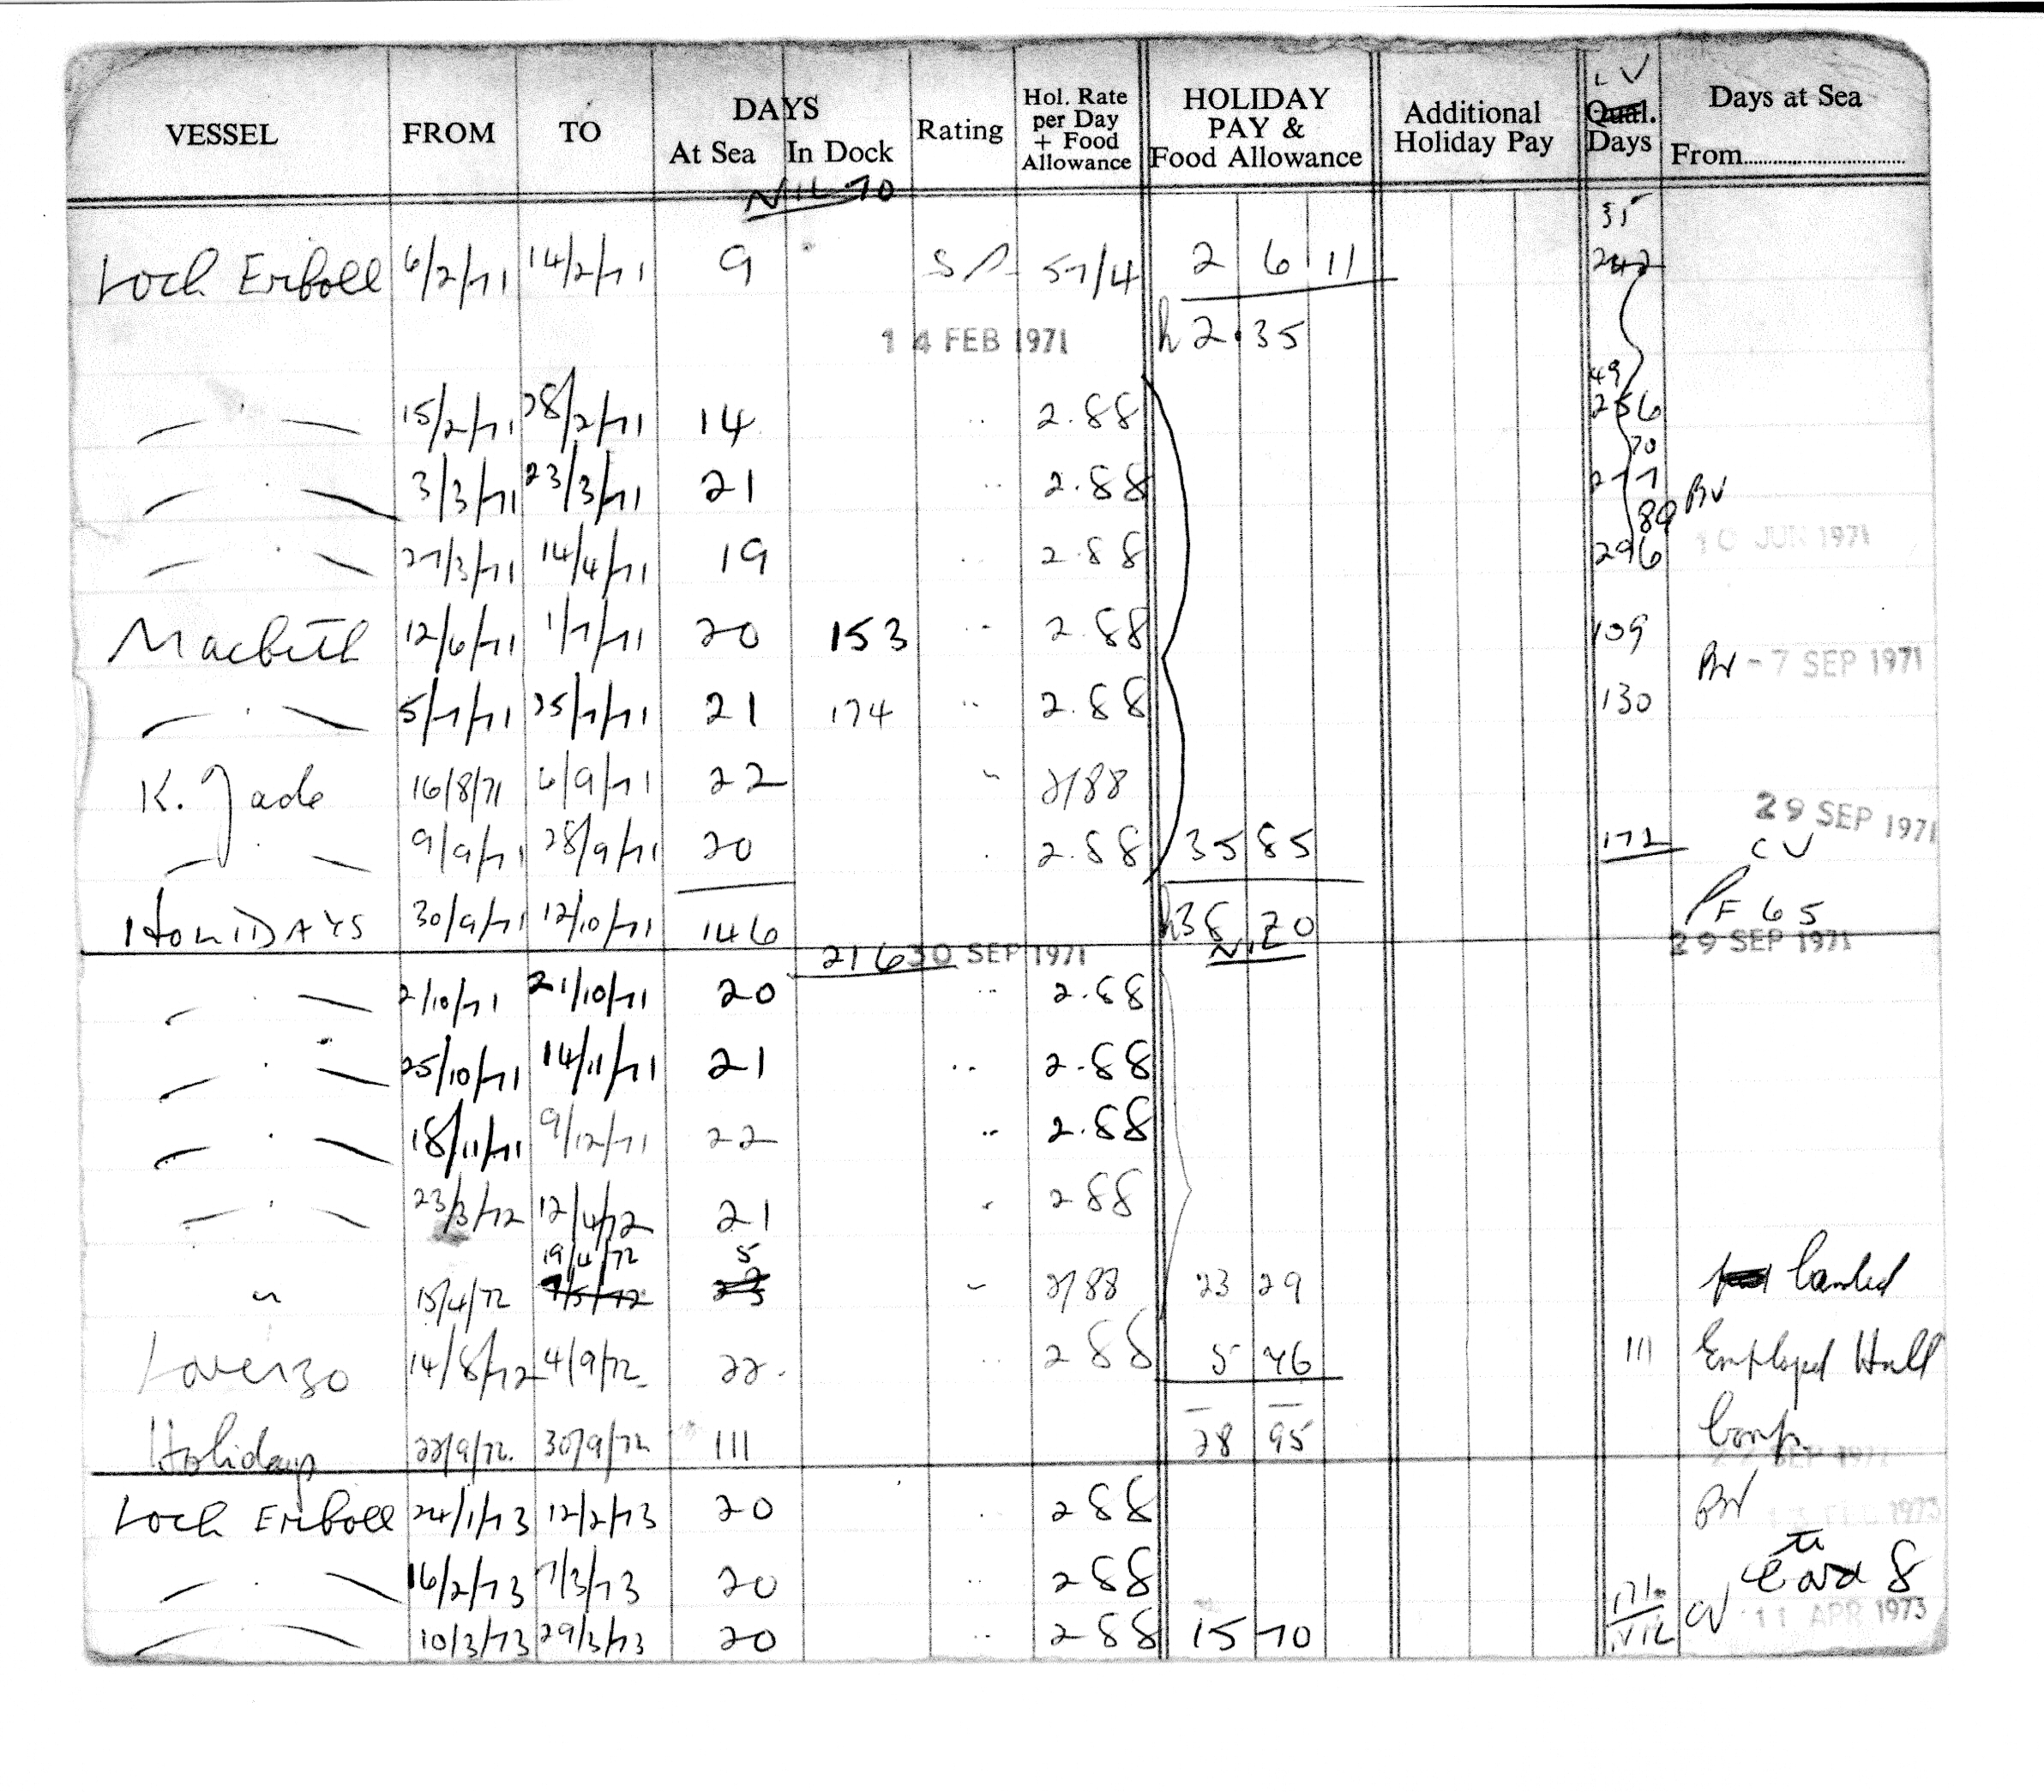 VESSEL FROM TO DAYS At Sea In Dock Rating Hol. Rate per Day + Food Allowance HOLIDAY PAY & Food Allowance Additional Holiday Pay Qual. Days Days at Sea From
NIL 70
35
Loch Eriboll 6/2/71 14/2/71 9 57/4 2 6 11 242
14 FEB 1971 2.35
49
15/2/71 28/2/71 14 " 2.88 256
70
3/3/71 23/3/71 21 " 2.88 277
89
27/3/71 14/4/71 19 " 2.88 296 10 JUN 1971
Macbeth 12/6/71 1/7/71 20 153 " 2.88 109 - 7 SEP 1971
" 5/7/71 25/7/71 21 174 " 2.88 130
K. Jade 16/8/71 6/9/71 22 " 2/88
29 SEP 1971
" 9/9/71 28/9/71 20 " 2.88 35 85 172 CV
HOLIDAYS 30/9/71 12/10/71 146 38 20 PF 65
216 30 SEP 1971 NIL 29 SEP 1971
" 2/10/71 21/10/71 20 " 2.88
" 25/10/71 14/11/71 21 " 2.88
" 18/11/71 9/12/71 22 " 2.88
" 23/3/72 12/4/72 21 " 2 88
19/4/72 5
" 15/4/72 7/5/72 23 " 2/88 23 29 landed
Lorenzo 14/8/72 4/9/72 22 " 2 88 5 76 111 Employed Hull
Holidays 22/9/72 30/9/72 111 28 95 Corp.
Loch Eriboll 24/1/73 12/2/73 20 " 2 88 13 FEB 1973
" 16/2/73 7/3/73 20 " 2 88 to Card 8
" 10/3/73 29/3/73 20 " 2 88 15 70 NIL CV 11 APR 1973